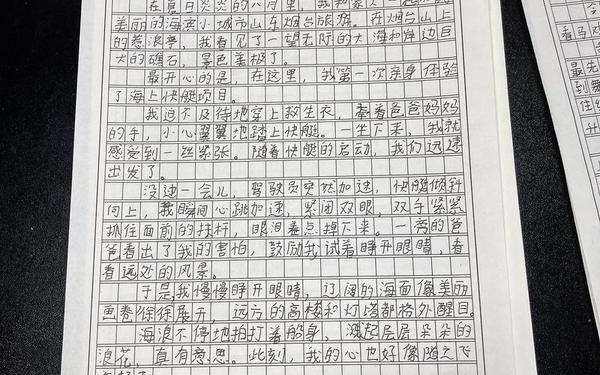 在夏日炎炎的八月里，我和家人一起
美丽的海滨小城市山东烟台旅游。在烟台山上
的惹浪亭，我看见了一望无际的大海和岸边巨
大的礁石，景色美极了。
最开心的是，在这里，我第一次亲身体验
了海上快艇项目。
我迫不及待地穿上救生衣，牵着爸爸妈妈
的手，小心翼翼地踏上快艇。一坐下来，我就
感受到一丝紧张。随着快艇的启动，我们迅速
出发了。
没过一会儿，驾驶员突然加速，快艇倾斜
向上，我瞬间心跳加速，紧闭双眼，双手紧紧
抓住面前的扶杆，眼泪差点掉下来。一旁的爸
爸看出了我的害怕，鼓励我试着睁开眼睛，看
看远处的风景。
于是，我慢慢睁开眼睛，辽阔的海面像美丽
画卷徐徐展开，远方的高楼和灯塔都格外醒目。
海浪不停地拍打着船身，溅起层层朵朵的
浪花，真有意思。此刻，我的心也好像随之飞
今
看马戏
最先
到
住
升